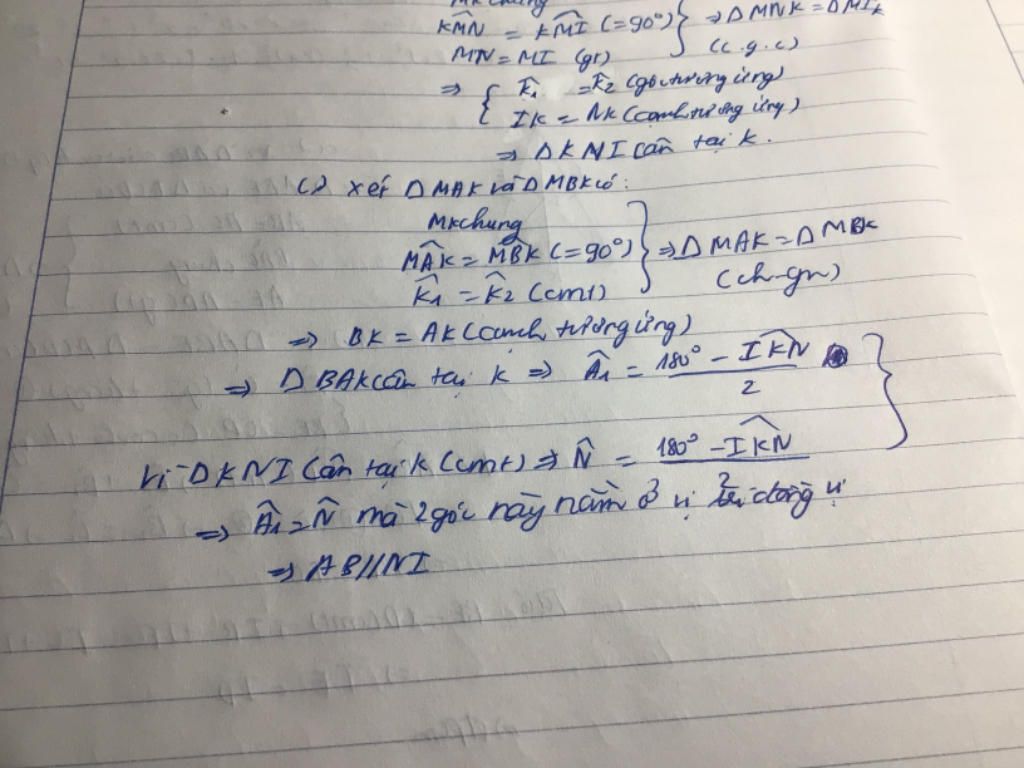 MK chung
KM̂N = KM̂I (=90°) } ⇒ Δ MNK = Δ MIK
MN = MI (gt) (c.g.c)
⇒ { K̂1 = K̂2 (góc tương ứng)
IK = NK (cạnh tương ứng)
⇒ Δ KNI cân tại K.
c) Xét Δ MAK và Δ MBK có:
MK chung
MÂK = MB̂K (=90°) } ⇒ Δ MAK = Δ MBK
K̂1 = K̂2 (cmt) (ch-gn)
⇒ BK = AK (cạnh tương ứng)
⇒ Δ BAK cân tại K ⇒ Â1 = (180° - IK̂N)/2
Vì Δ KNI cân tại K (cmt) ⇒ N̂ = (180° - IK̂N)/2
⇒ Â1 = N̂ mà 2 góc này nằm ở vị trí đồng vị
⇒ AB // NI